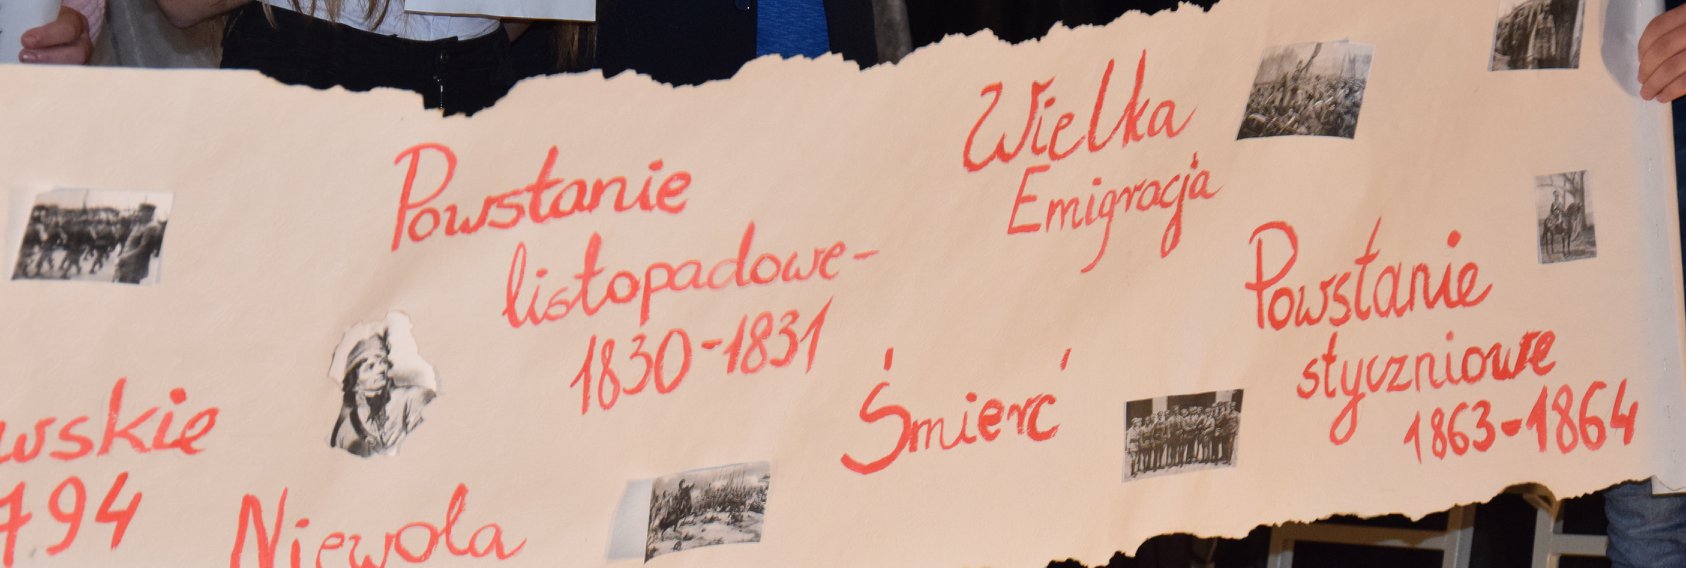 Powstanie
listopadowe-
1830-1831
Wielka
Emigracja
Powstanie
styczniowe
1863-1864
Śmierć
wskie
794
Niewola